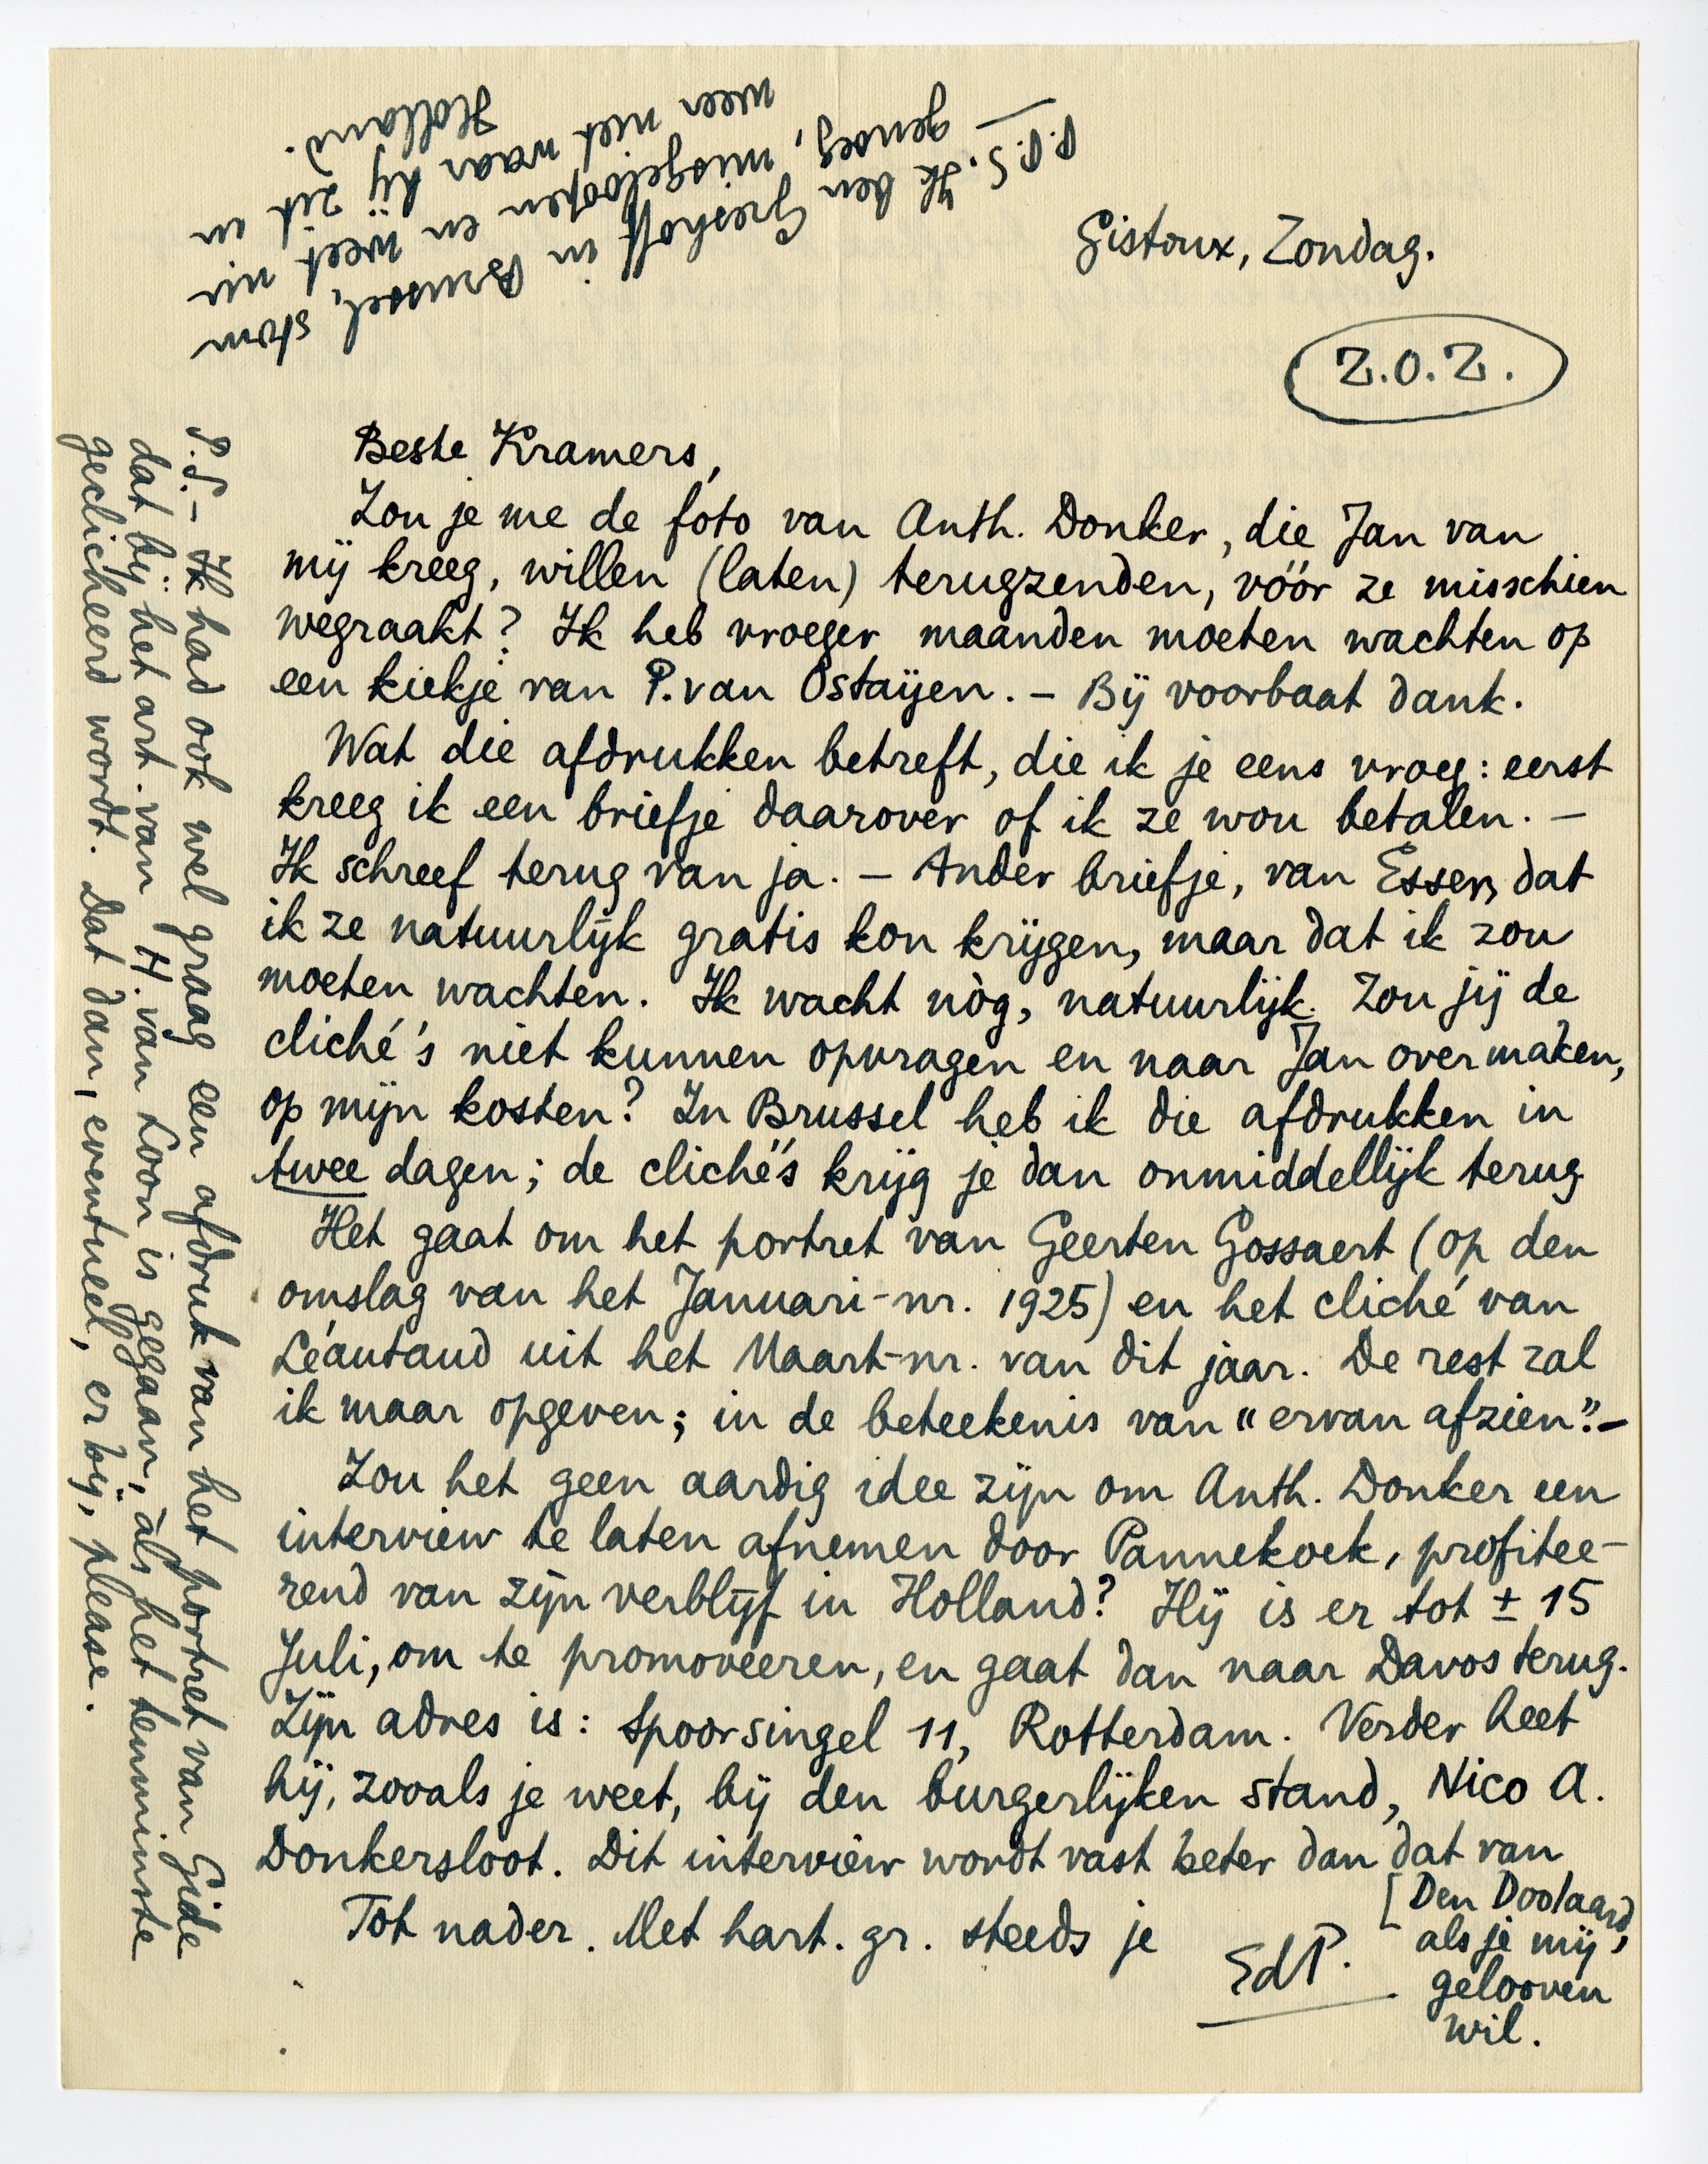 Gistoux, Zondag.
Z.O.Z.
Beste Kramers,
Zou je me de foto van Anth. Donker, die Jan van
mij kreeg, willen (laten) terugzenden, vóór ze misschien
wegraakt? Ik heb vroeger maanden moeten wachten op
een kiekje van P. van Ostaijen. – Bij voorbaat dank.
Wat die afdrukken betreft, die ik je eens vroeg: eerst
kreeg ik een briefje daarover of ik ze wou betalen. –
Ik schreef terug van ja. – Ander briefje, van Esser, dat
ik ze natuurlijk gratis kon krijgen, maar dat ik zou
moeten wachten. Ik wacht nòg, natuurlijk. Zou jij de
cliché's niet kunnen opvragen en naar Jan overmaken,
op mijn kosten? In Brussel heb ik die afdrukken in
twee dagen; de cliché's krijg je dan onmiddellijk terug.
Het gaat om het portret van Geerten Gossaert (op den
omslag van het Januari-nr. 1925) en het cliché van
Léautaud uit het Maart-nr. van dit jaar. De rest zal
ik maar opgeven; in de beteekenis van "ervan afzien". –
Zou het geen aardig idee zijn om Anth. Donker een
interview te laten afnemen door Pannekoek, profitee-
rend van zijn verblijf in Holland? Hij is er tot ± 15
Juli, om te promoveeren, en gaat dan naar Davos terug.
Zijn adres is: Spoorsingel 11, Rotterdam. Verder heet
hij, zooals je weet, bij den burgerlijken stand, Nico A.
Donkersloot. Dit interview wordt vast beter dan dat van
[Den Doolaard,
als je mij
gelooven
wil.
Tot nader. Met hart. gr. steeds je
EdP.
P.S. – Ik had ook wel graag een afdruk van het portret van Gide
dat bij het art. van H. van Loon is gegaan, àls het tenminste
geclicheerd wordt. Dat dan, eventueel, er bij, please.
P.P.S. Ik ben Greshoff in Brussel, stom
genoeg, misgeloopen en weet nu
weer niet waar hij zit in
Holland.